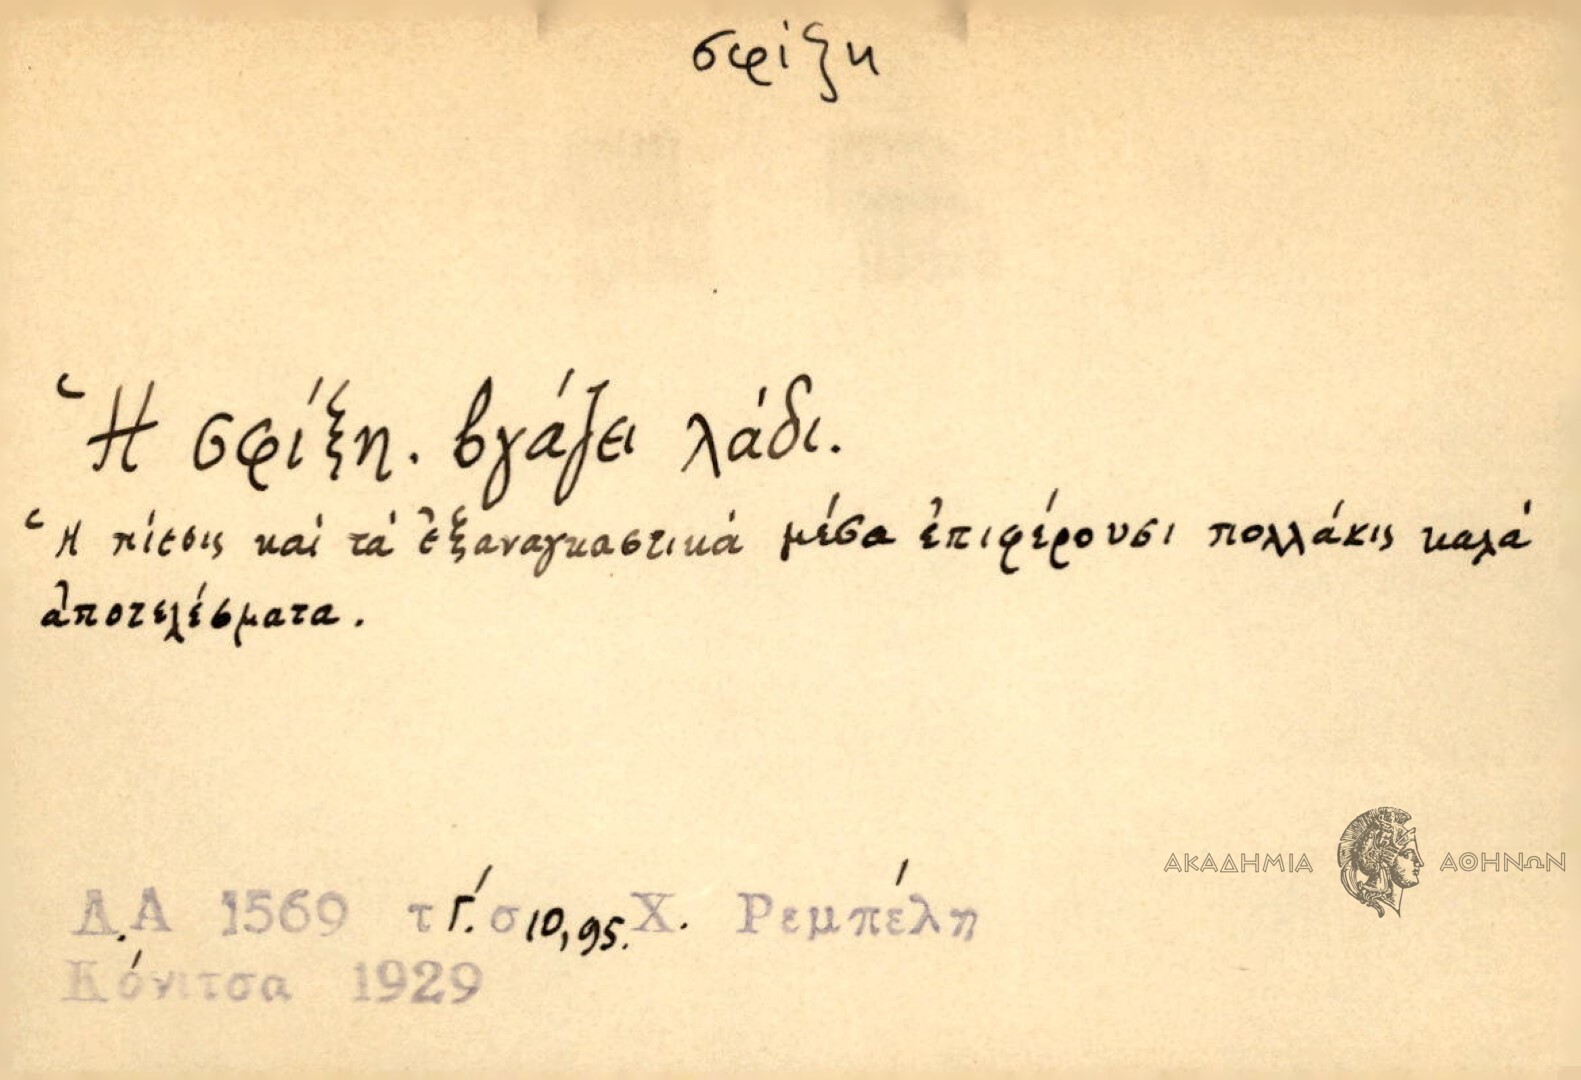 σφίξη
Ἡ σφίξη. βγάζει λάδι.
Ἡ πίεσις καί τά ἐξαναγκαστικά μέσα ἐπιφέρουσι πολλάκις καλά
ἀποτελέσματα.
ΑΚΑΔΗΜΙΑ ΑΘΗΝΩΝ
Λ.Α 1569 τ Γ΄. σ 10, 95. Χ. Ρεμπέλη
Κόνιτσα 1929